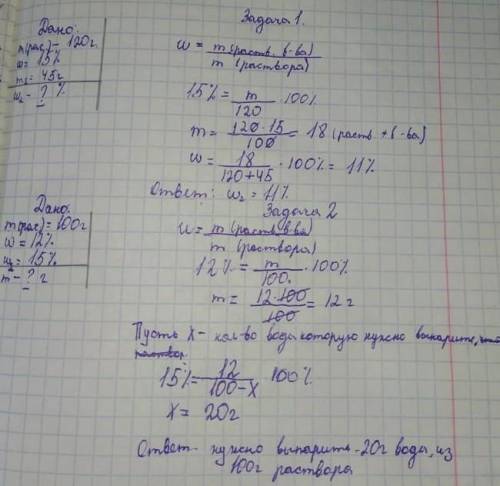 Задача 1.
Дано:
m(рас) = 120г
w = 15%
m₂ = 45г
w₂ - ? %
w = m(раств. в-ва) / m(раствора)
15% = m / 120 · 100%
m = 120 · 15 / 100 = 18 (раств. в-ва)
w = 18 / 120+45 · 100% = 11%
Ответ: w₂ = 11%
Задача 2
Дано:
m(рас) = 100г
w = 12%
w₂ = 15%
m - ? г
w = m(раств. в-ва) / m(раствора)
12% = m / 100 · 100%
m = 12 · 100 / 100 = 12 г
Пусть X - кол-во воды которую нужно выпарить,
15% = 12 / 100-X · 100%
X = 20г
Ответ - нужно выпарить 20г воды, из
100г раствора